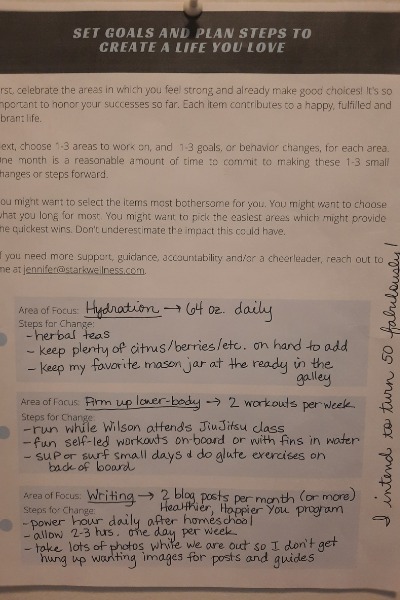 SET GOALS AND PLAN STEPS TO
CREATE A LIFE YOU LOVE
rst, celebrate the areas in which you feel strong and already make good choices! It's so
mportant to honor your successes so far. Each item contributes to a happy, fulfilled and
brant life.
ext, choose 1-3 areas to work on, and 1-3 goals, or behavior changes, for each area.
One month is a reasonable amount of time to commit to making these 1-3 small
hanges or steps forward.
ou might want to select the items most bothersome for you. You might want to choose
what you long for most. You might want to pick the easiest areas which might provide
he quickest wins. Don't underestimate the impact this could have.
f you need more support, guidance, accountability and/or a cheerleader, reach out to
me at jennifer@starkwellness.com.
Area of Focus: Hydration → 64 oz. daily
Steps for Change:
- herbal teas
- keep plenty of citrus/berries/etc. on hand to add
- keep my favorite mason jar at the ready in the
galley
Area of Focus: Firm up lower-body → 2 workouts per week
Steps for Change:
- run while Wilson attends JiuJitsu class
- fun self-led workouts on-board or with fins in water
- SUP or surf small days & do glute exercises on
back of board
Area of Focus: Writing → 2 blog posts per month (or more)
Steps for Change: Healthier, Happier You program
- power hour daily after homeschool
- allow 2-3 hrs. one day per week
- take lots of photos while we are out so I don't get
hung up wanting images for posts and guides
I intend to turn 50 fabulously!